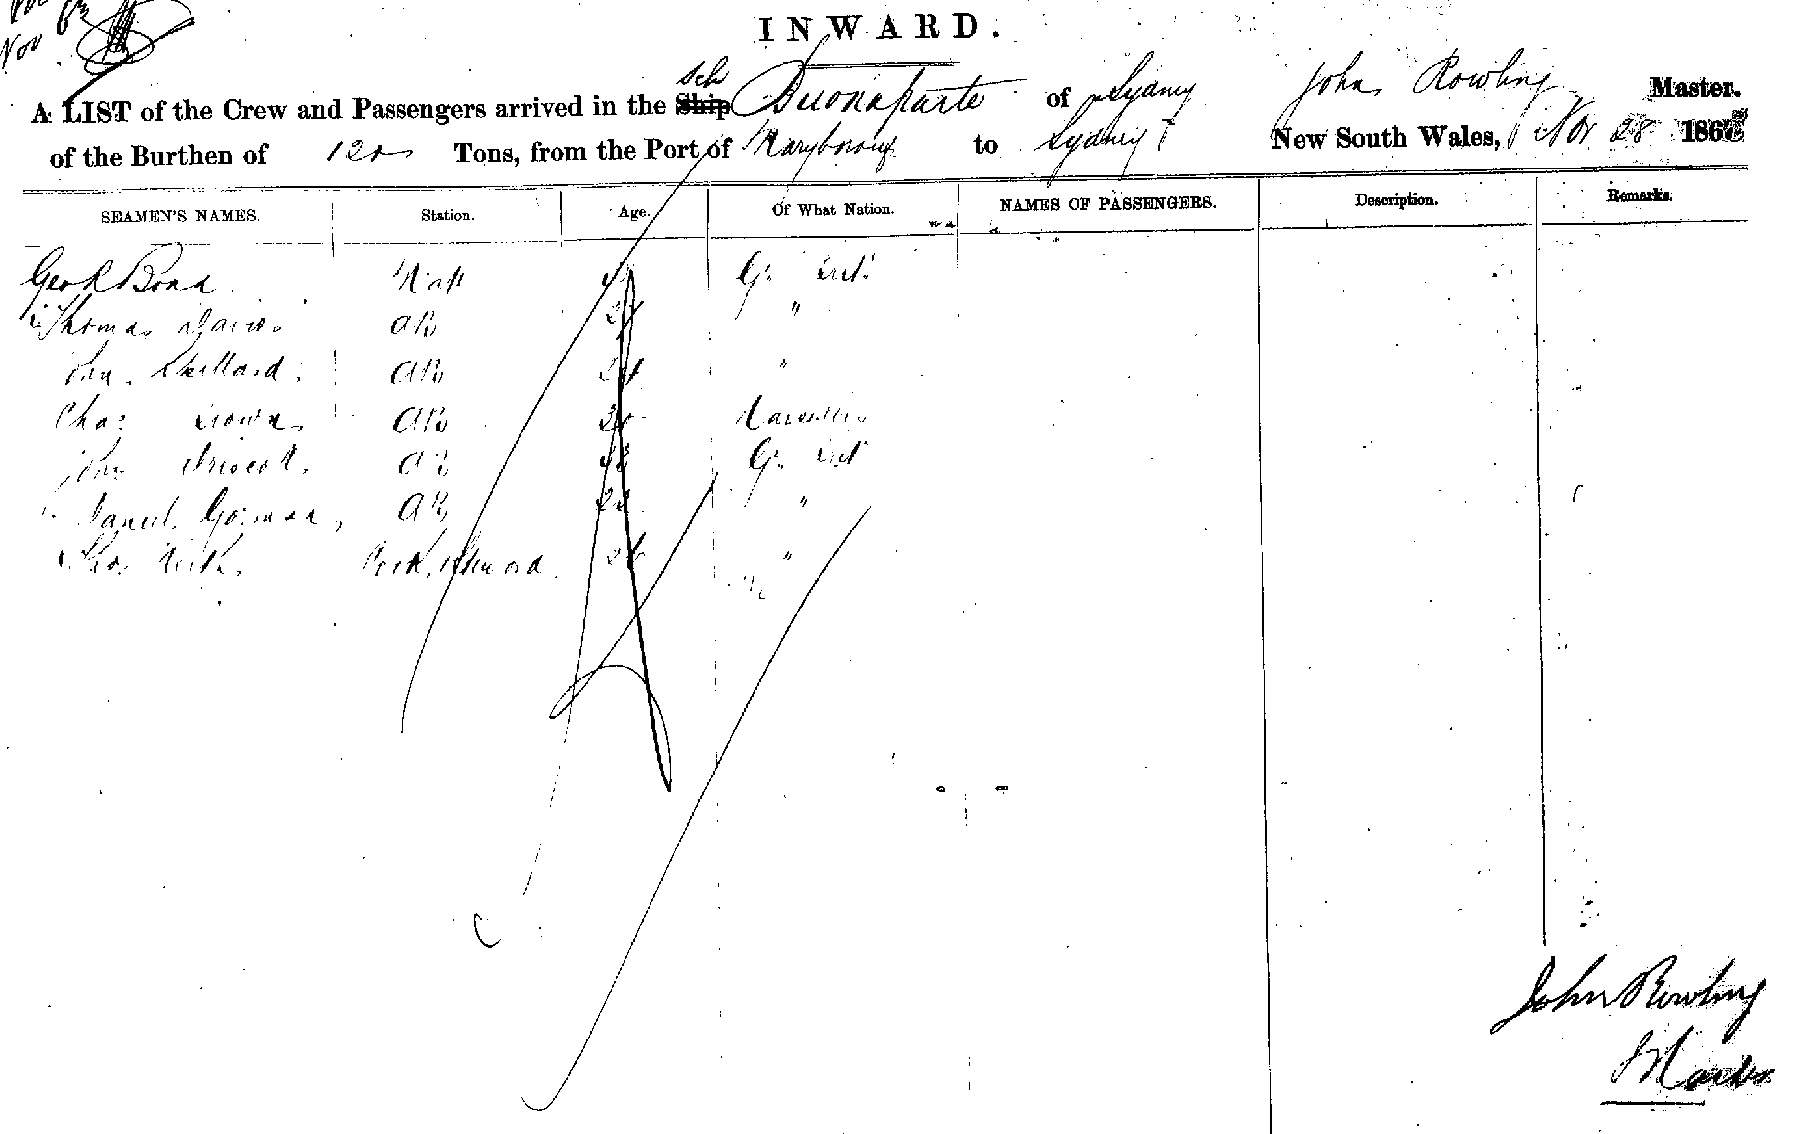 Nov
INWARD.
A LIST of the Crew and Passengers arrived in the Ship Sch Buonaparte of Sydney John Rowling Master.
of the Burthen of 120 Tons, from the Port of Maryborough to Sydney New South Wales, Nov 28 186
SEAMEN'S NAMES. Station. Age. Of What Nation. NAMES OF PASSENGERS. Description. Remarks.
Geo R Bond Mate Gt Brit
Thomas Davis AB "
AB 24 "
Chas Brown AB
John Driscoll AB Gt Brit
Daniel Gorman AB 22 "
Thos Cook Steward "
John Rowling
Master